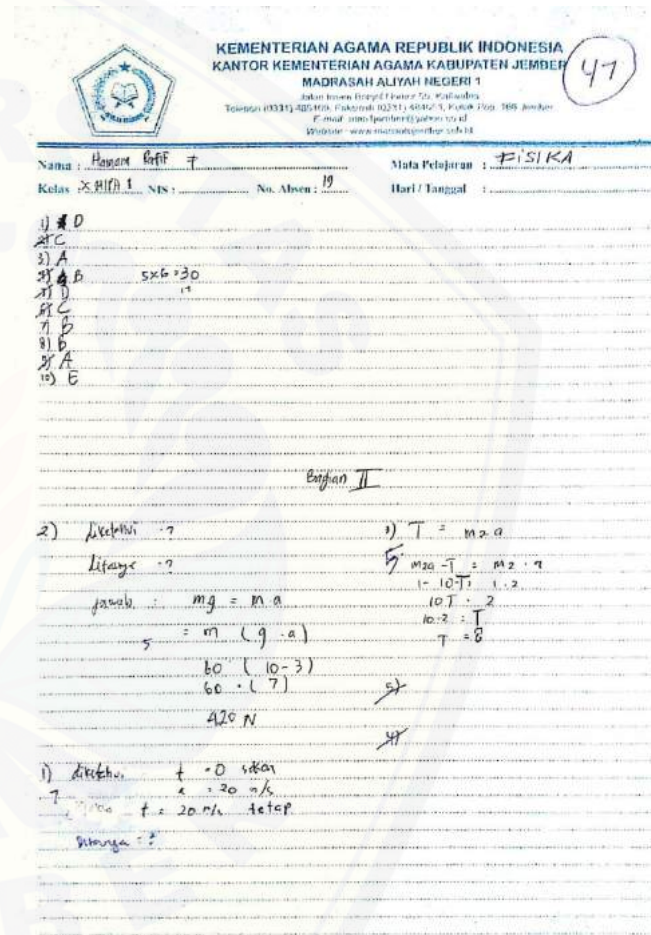 KEMENTERIAN AGAMA REPUBLIK INDONESIA
KANTOR KEMENTERIAN AGAMA KABUPATEN JEMBER
MADRASAH ALIYAH NEGERI 1
47
Nama : Hamam Rafif F
Mata Pelajaran : FISIKA
Kelas : X MIPA 1 NIS : No. Absen : 19
Hari / Tanggal :
1) D
2) C
3) A
4) B 5x6=30
5) D
6) C
7) B
8) B
9) A
10) E
Bagian II
2) diketahui : ?
ditanya : ?
jawab : mg = m a
5 = m (g . a)
60 (10-3)
60 . (7)
420 N
3) T = m2 a
5 m2a - T = m2 . a
1 - 10 - T = 1 . 2
10 T . 2
10 - 2 = T
T = 8
5)
4)
1) diketahui t = 0 sekon
7 = 20 m/s
t = 20 m/s tetap
Ditanya = ?